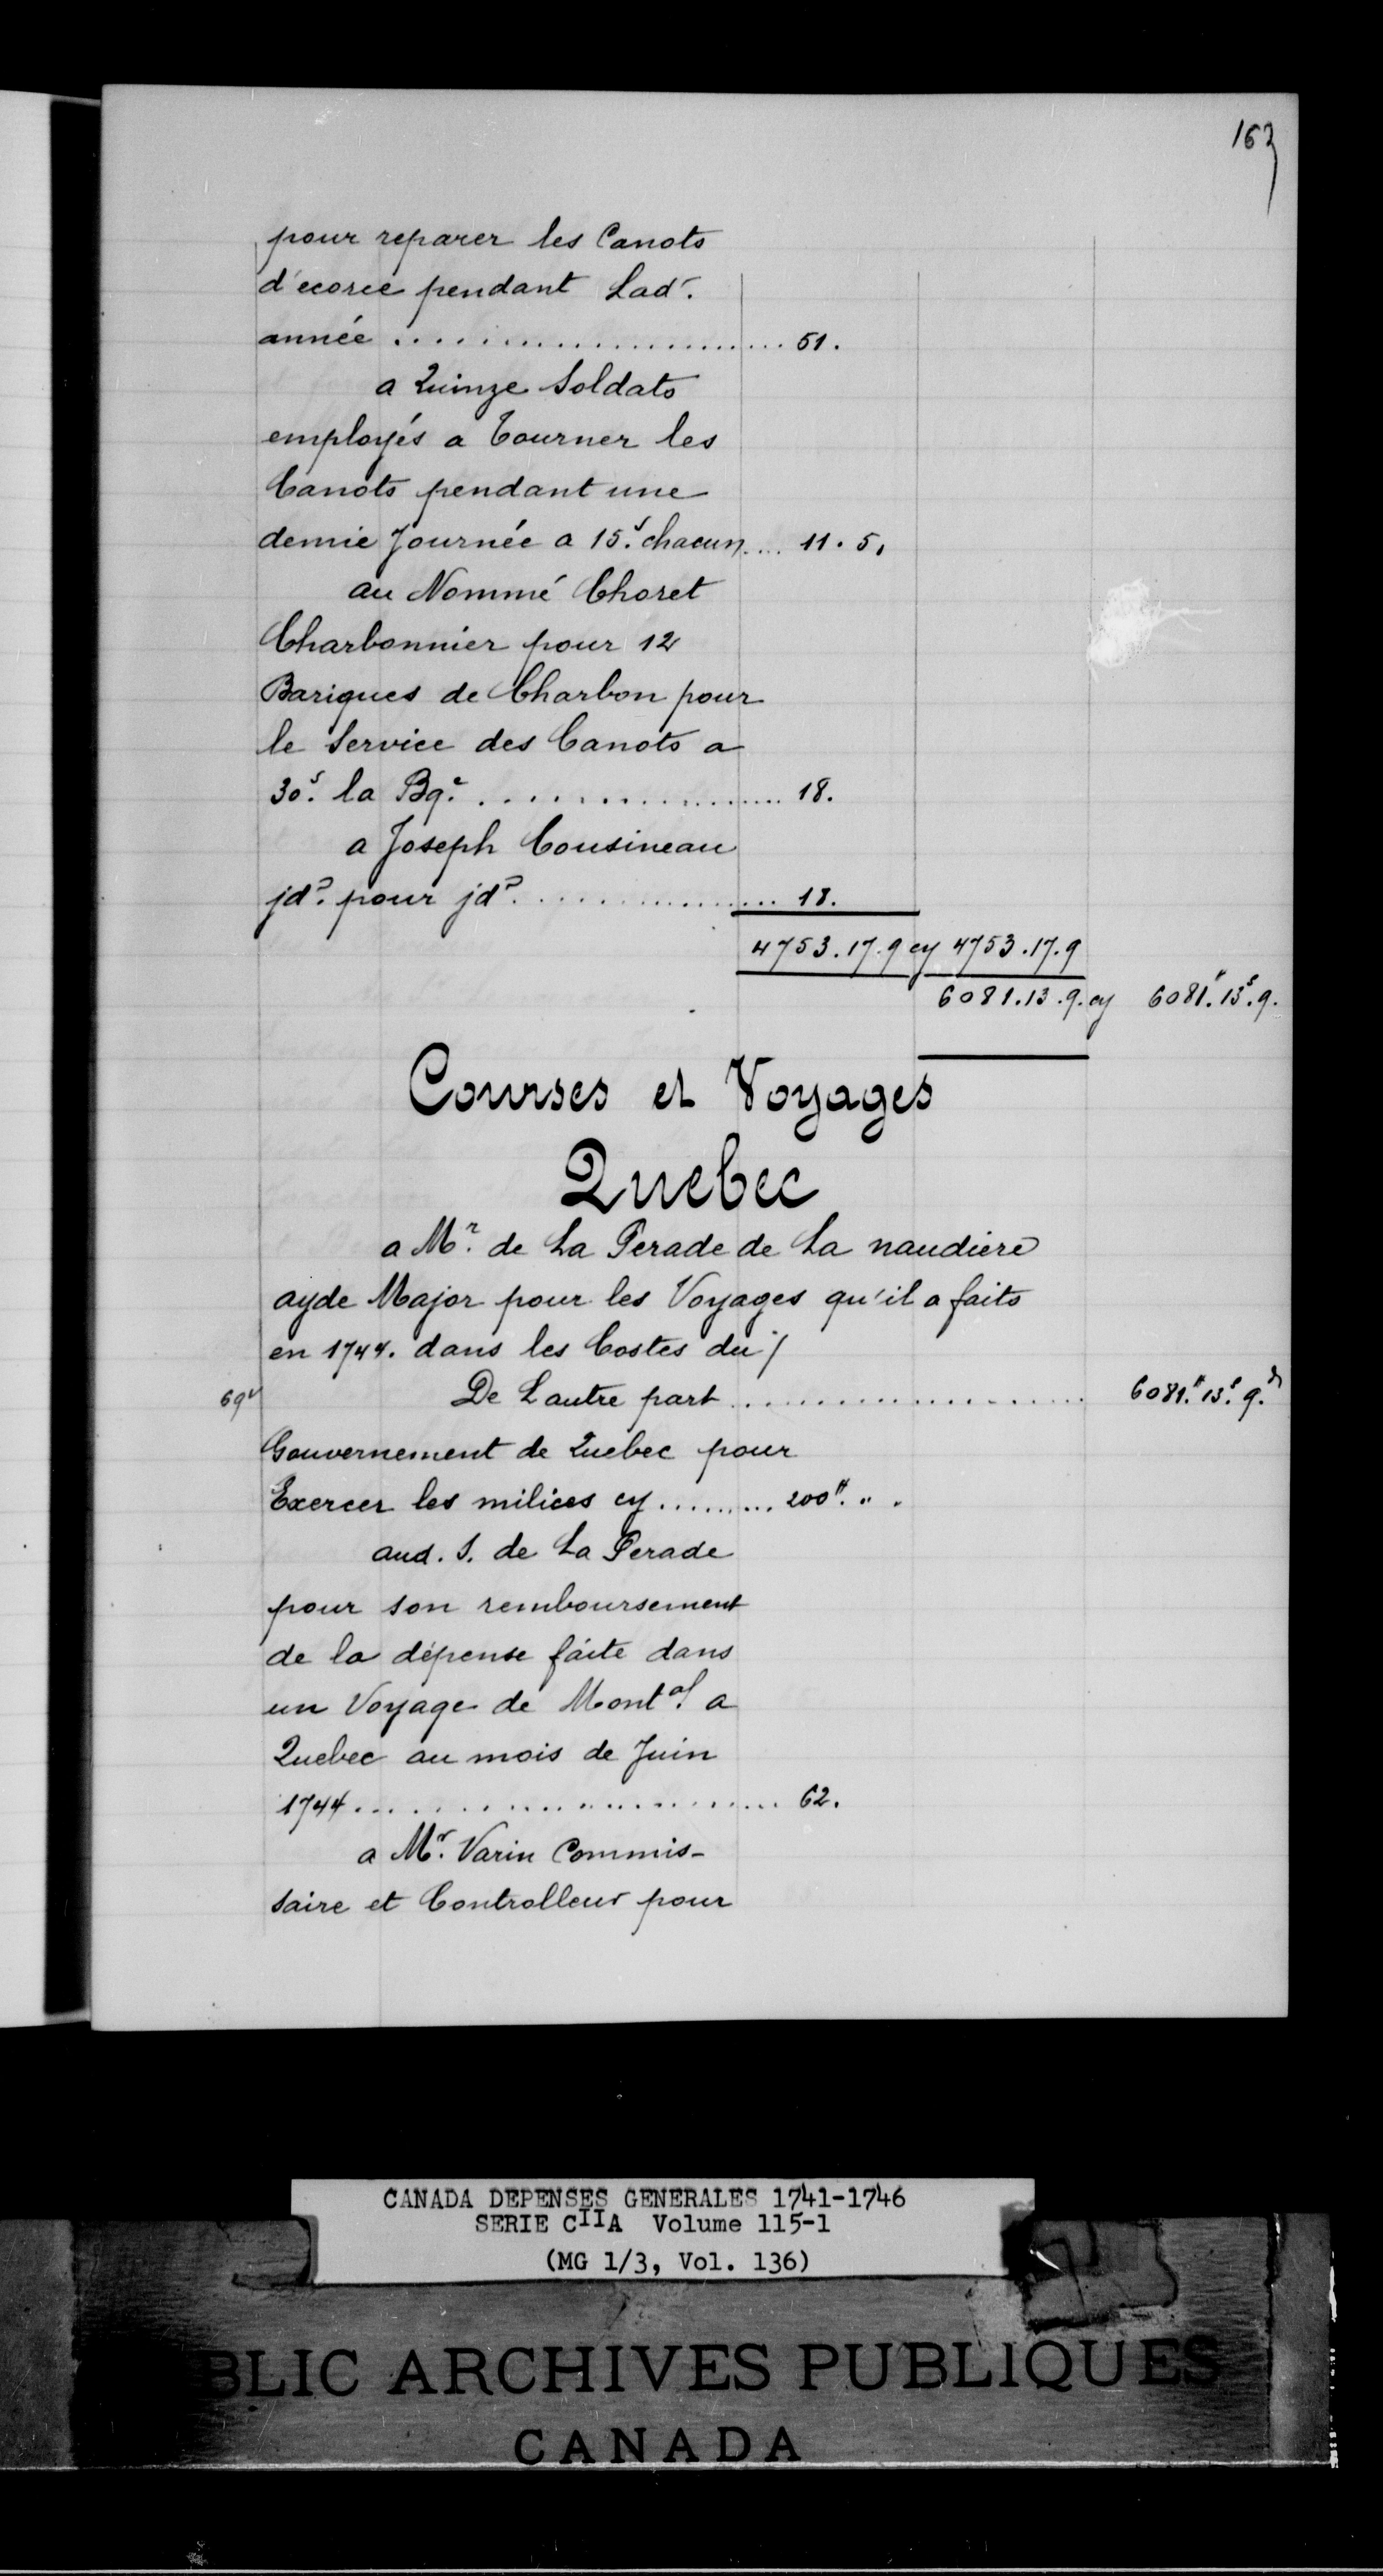 163
pour reparer les Canots
d'ecorce pendant Lad.
année ........................ 51.
a Quinze Soldats
employés a Tourner les
Canots pendant une
demie Journée a 15.s chacun .... 11. 5.
au Nommé Choret
Charbonnier pour 12
Bariques de Charbon pour
le Service des Canots a
30.s la Bq.e .................... 18.
a Joseph Cousineau
jd.o pour jd.o .................... 18.
4753.17.9 cy 4753.17.9
6081.13.9. cy 6081.# 13.s 9.
Courses et Voyages
Quebec
a M.r de La Perade de La naudiere
ayde Major pour les Voyages qu'il a faits
en 1744. dans les Costes du /
69v De Lautre part ........................ 6081.# 13.s 9.d
Gouvernement de Quebec pour
Exercer les milices cy .......... 200#. " .
aud. S. de La Perade
pour son remboursement
de la dépense faite dans
un Voyage de Mont.al a
Quebec au mois de Juin
1744 ........................ 62.
a M.r Varin Commis-
saire et Controlleur pour
CANADA DEPENSES GENERALES 1741-1746
SERIE CIIA Volume 115-1
(MG 1/3, Vol. 136)
BLIC ARCHIVES PUBLIQUES
CANADA